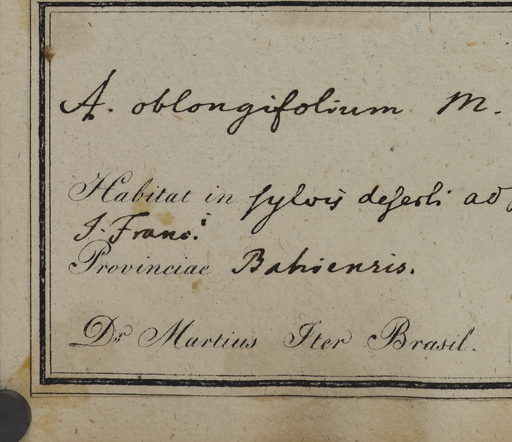 A. oblongifolium M.
Habitat in sylvis deserti ad
S. Franc.i
Provinciae Bahiensis.
Dr. Martius Iter Brasil.